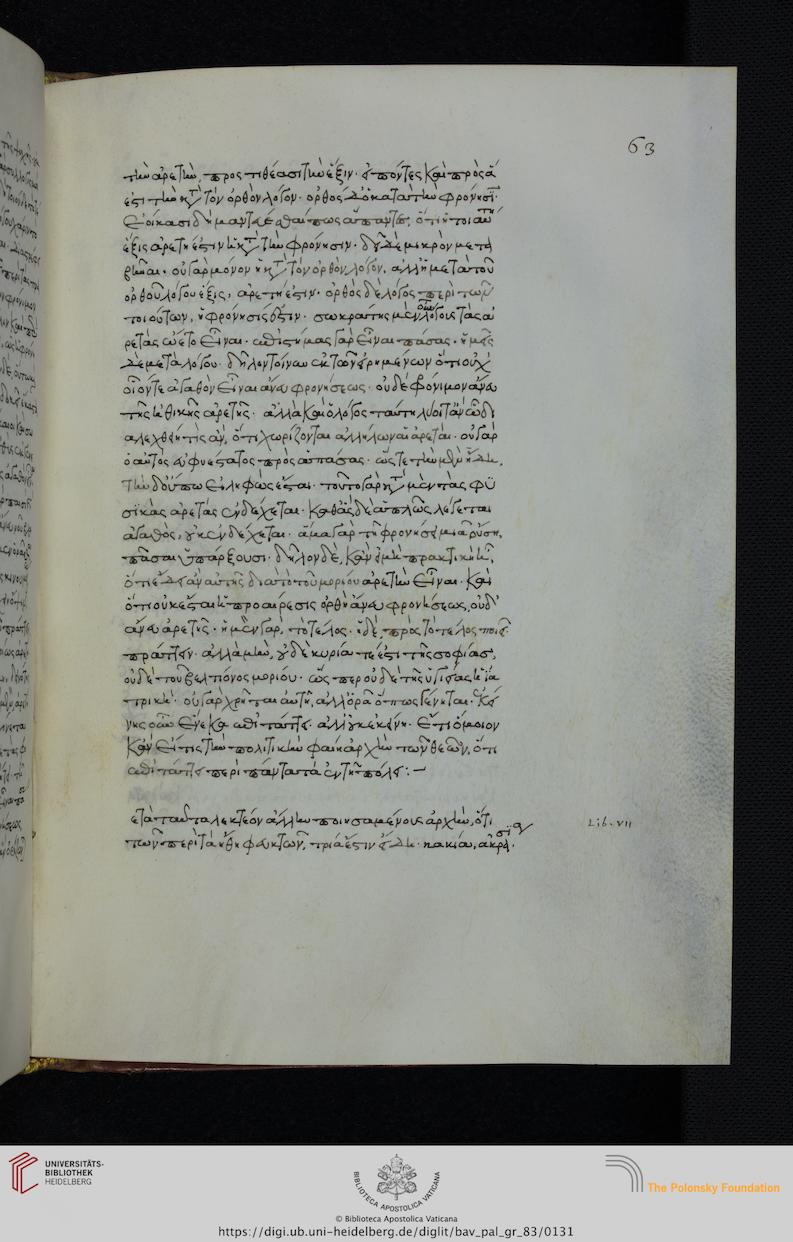 63
τὴν ἀρετὴν, προστιθέασι τὴν ἕξιν· εἰπόντες καὶ πρὸς ἅ
ἐστι τὴν κατὰ τὸν ὀρθὸν λόγον· ὀρθὸς δ' ὁ κατὰ τὴν φρόνησιν·
ἐοίκασι δὴ μαντεύεσθαί πως ἅπαντες, ὅτι ἡ τοιαύτη
ἕξις ἀρετή ἐστιν ἡ κατὰ τὴν φρόνησιν· δεῖ δὲ μικρὸν μετα
βῆναι· οὐ γὰρ μόνον ἡ κατὰ τὸν ὀρθὸν λόγον, ἀλλ' ἡ μετὰ τοῦ
ὀρθοῦ λόγου ἕξις, ἀρετή ἐστιν· ὀρθὸς δὲ λόγος περὶ τῶν
τοιούτων, ἡ φρόνησίς ἐστιν· σωκράτης μὲν οὖν λόγους τὰς ἀ
ρετὰς ᾤετο εἶναι· ἐπιστήμας γὰρ εἶναι πάσας· ἡμεῖς
δὲ μετὰ λόγου· δῆλον τοίνυν ἐκ τῶν εἰρημένων ὅτι οὐχ'
οἷόν τε ἀγαθὸν εἶναι ἄνευ φρονήσεως· οὐδὲ φρόνιμον ἄνευ
τῆς ἠθικῆς ἀρετῆς· ἀλλὰ καὶ ὁ λόγος ταύτῃ λύοιτ' ἂν ὧ δι
αλεχθείη τις ἂν, ὅτι χωρίζονται ἀλλήλων αἱ ἀρεταί· οὐ γὰρ
ὁ αὐτὸς εὐφυέστατος πρὸς ἁπάσας· ὥστε τὴν μὲν ἤδη,
τὴν δ' οὔπω εἰληφὼς ἔσται· τοῦτο γὰρ κατὰ μὲν τὰς φυ
σικὰς ἀρετὰς ἐνδέχεται· καθ' ἃς δὲ ἁπλῶς λέγεται
ἀγαθὸς, οὐκ ἐνδέχεται· ἅμα γὰρ τῇ φρονήσει μιᾷ οὔσῃ,
πᾶσαι ὑπάρξουσι· δῆλον δὲ, κἂν εἰ μὴ πρακτικὴ ἦν,
ὅτι ἔδει ἂν αὐτῆς διὰ τὸ τοῦ μορίου ἀρετὴν εἶναι· καὶ
ὅτι οὐκ ἔσται ἡ προαίρεσις ὀρθὴ ἄνευ φρονήσεως, οὐδ'
ἄνευ ἀρετῆς· ἡ μὲν γὰρ, τὸ τέλος· ἡ δὲ πρὸς τὸ τέλος ποιεῖ
πράττειν· ἀλλὰ μὴν, οὐδὲ κυρία τέ ἐστι τῆς σοφίας,
οὐδὲ τοῦ βελτίονος μορίου· ὥσπερ οὐδὲ τῆς ὑγιείας ἡ ἰα
τρική· οὐ γὰρ χρῆται αὐτῇ, ἀλλ' ὁρᾷ ὅπως γένηται· ἐκεί
νης οὖν ἕνεκα ἐπιτάττει· ἀλλ' οὐκ ἐκείνῃ· ἔτι ὅμοιον
κἂν εἴ τις τὴν πολιτικὴν φαίη ἄρχειν τῶν θεῶν, ὅτι
ἐπιτάττει περὶ πάντα τὰ ἐν τῇ πόλει:—
ετὰ ταῦτα λεκτέον ἄλλην ποιησαμένους ἀρχὴν, ὅτι
Lib. VII
τῶν περὶ τὰ ἤθη φευκτῶν, τρία ἐστὶν εἴδη· κακία, ἀκρασία,
UNIVERSITÄTS-
BIBLIOTHEK
HEIDELBERG
BIBLIOTECA APOSTOLICA VATICANA
The Polonsky Foundation
© Biblioteca Apostolica Vaticana
https://digi.ub.uni-heidelberg.de/diglit/bav_pal_gr_83/0131